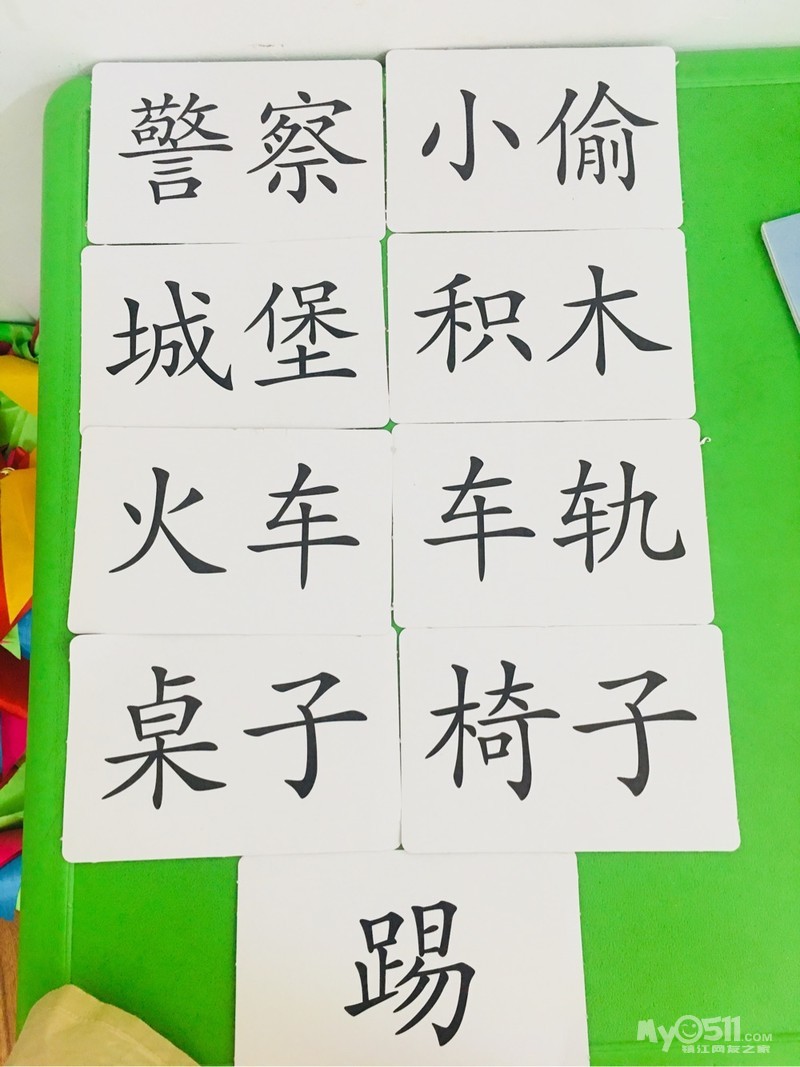 警察 小偷
城堡 积木
火车 车轨
桌子 椅子
踢
My0511.COM
镇江网友之家